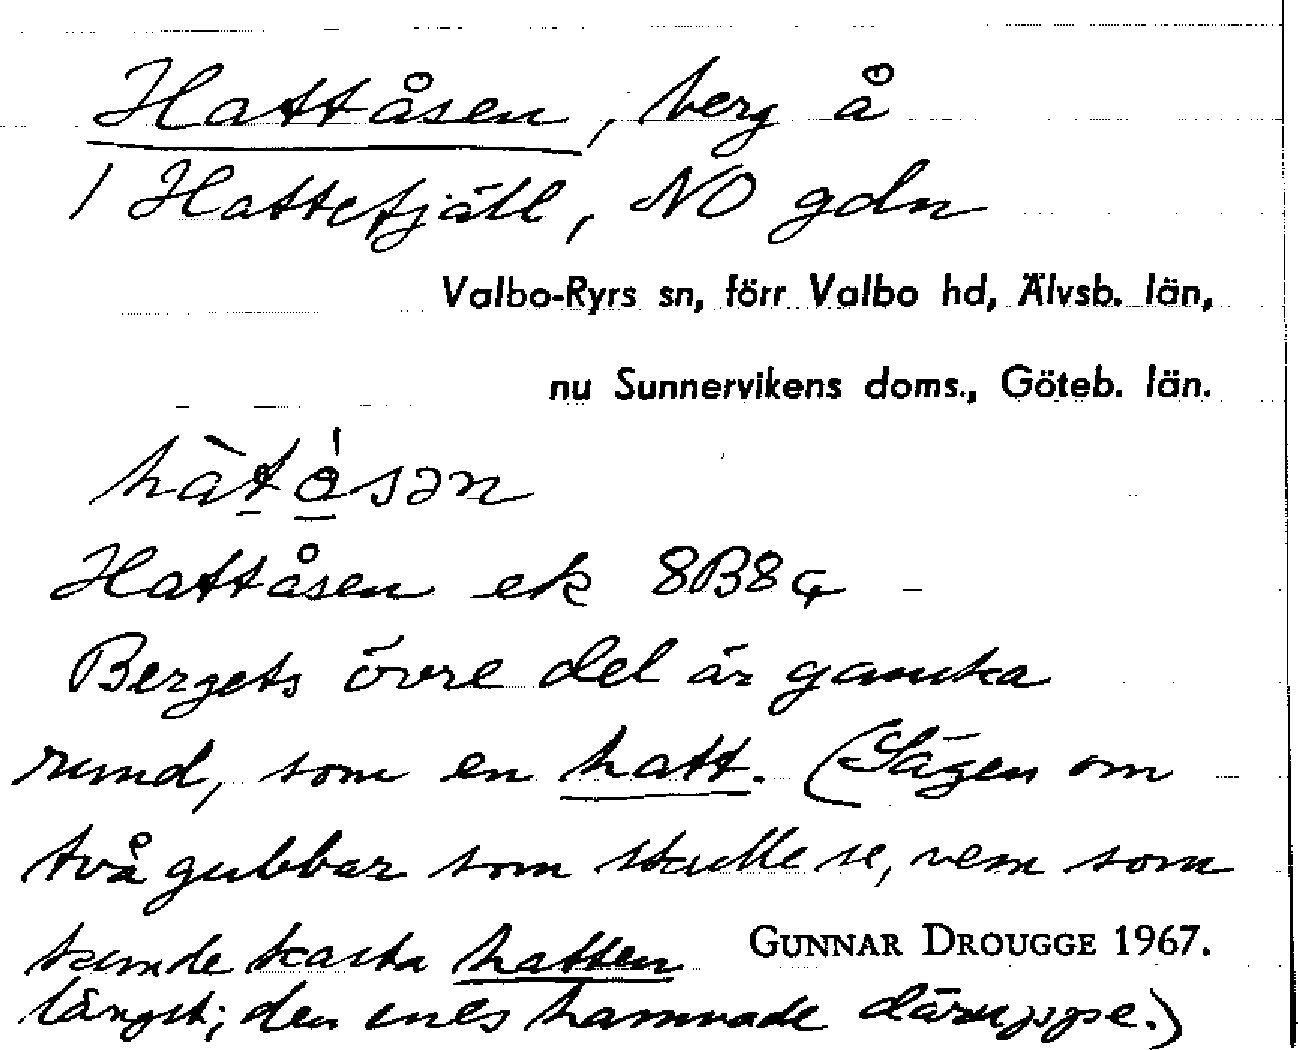 Hattåsen, berg å
1 Hattefjäll, NO gdn
Valbo-Ryrs sn, förr Valbo hd, Älvsb. län,
nu Sunnervikens doms., Göteb. län.
hàt̠ǻ̠sən
Hattåsen ek 8B8c
Bergets övre del är ganska
rund, som en hatt. (Sägen om
två gubbar som skulle se, vem som
kunde kasta hatten
GUNNAR DROUGGE 1967.
längst; den enes hamnade däruppe.)